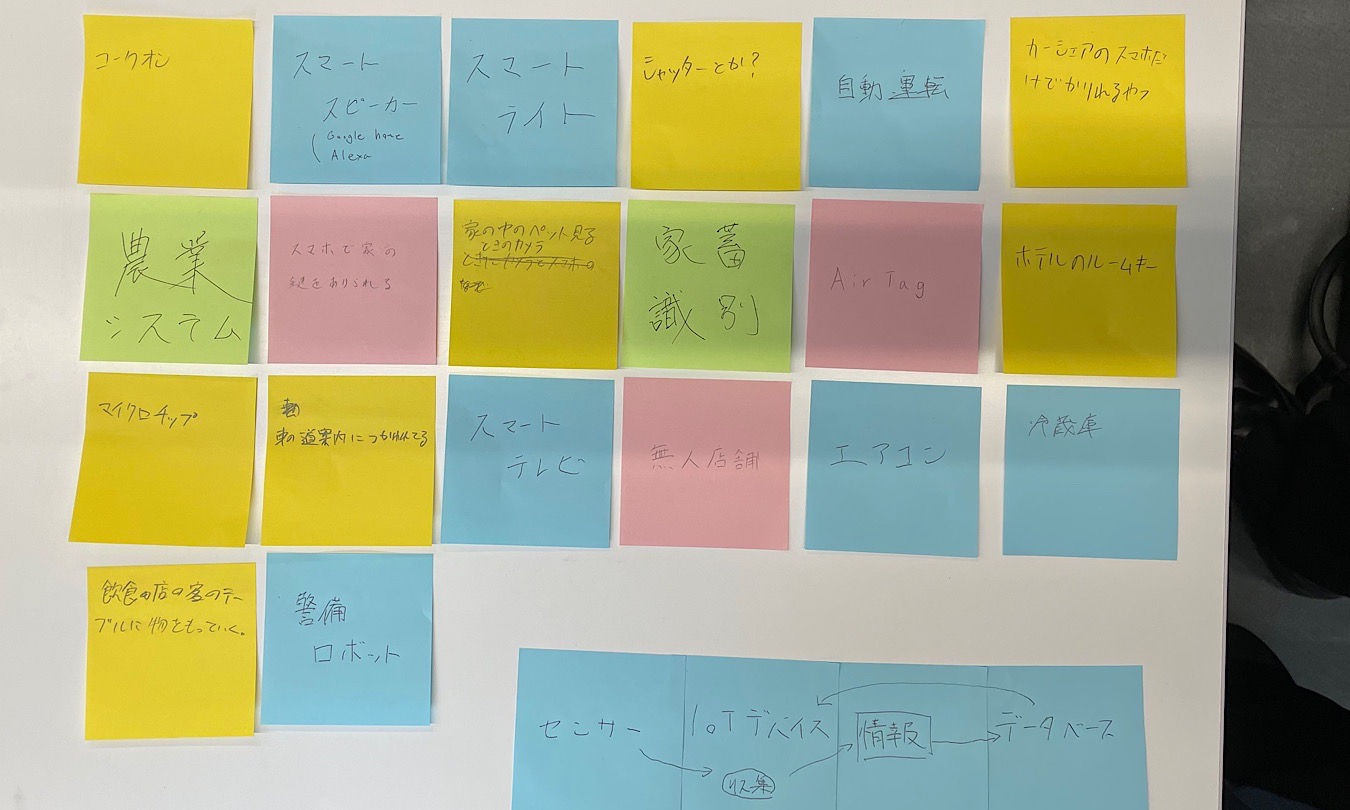 コークオン
スマート
スピーカー
Google home
Alexa
スマート
ライト
シャッターとか?
自動運転
カーシェアのスマホだ
けでかりれるやつ
農業
システム
スマホで家の
鍵をあけられる
家の中のペット見る
ときのカメラ
家畜
識別
AirTag
ホテルのルームキー
マイクロチップ
車の道案内につかわれてる
スマート
テレビ
無人店舗
エアコン
冷蔵庫
飲食の店の客のテー
ブルに物をもっていく。
警備
ロボット
センサー
IoTデバイス
収集
情報
データベース